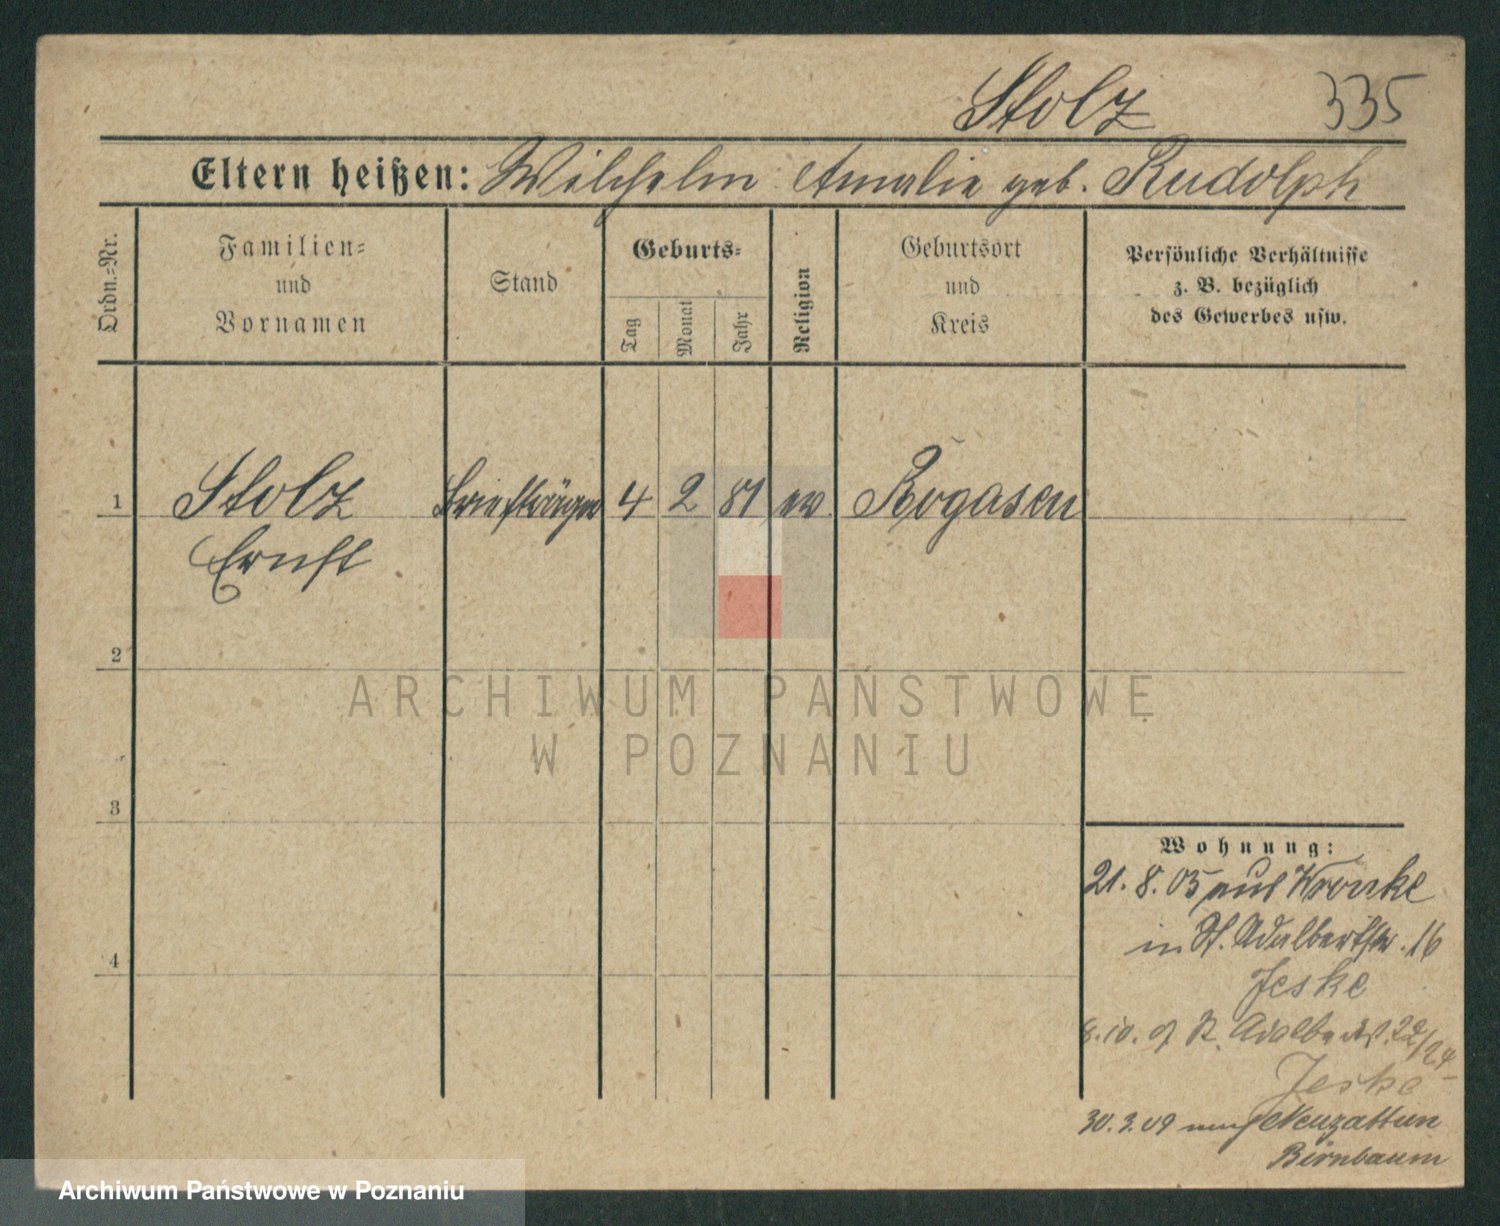 Stolz 335
Eltern heißen: Wilhelm Amalie geb. Rudolph
Ordn.-Nr.
Familien-
und
Vornamen
Stand
Geburts-
Tag
Monat
Jahr
Religion
Geburtsort
und
Kreis
Persönliche Verhältnisse
z. B. bezüglich
des Gewerbes usw.
1 Stolz Briefträger 4 2 81 ev Rogasen
Ernst
2
3
4
Wohnung:
21. 8. 05 aus Wronke
in St. Adalbertstr. 16
Jeske
8. 10. St. Adalbertst. 22/24
Jeske
30. 3. 09 nach Neuzattum
Birnbaum
ARCHIWUM PAŃSTWOWE
W POZNANIU
Archiwum Państwowe w Poznaniu